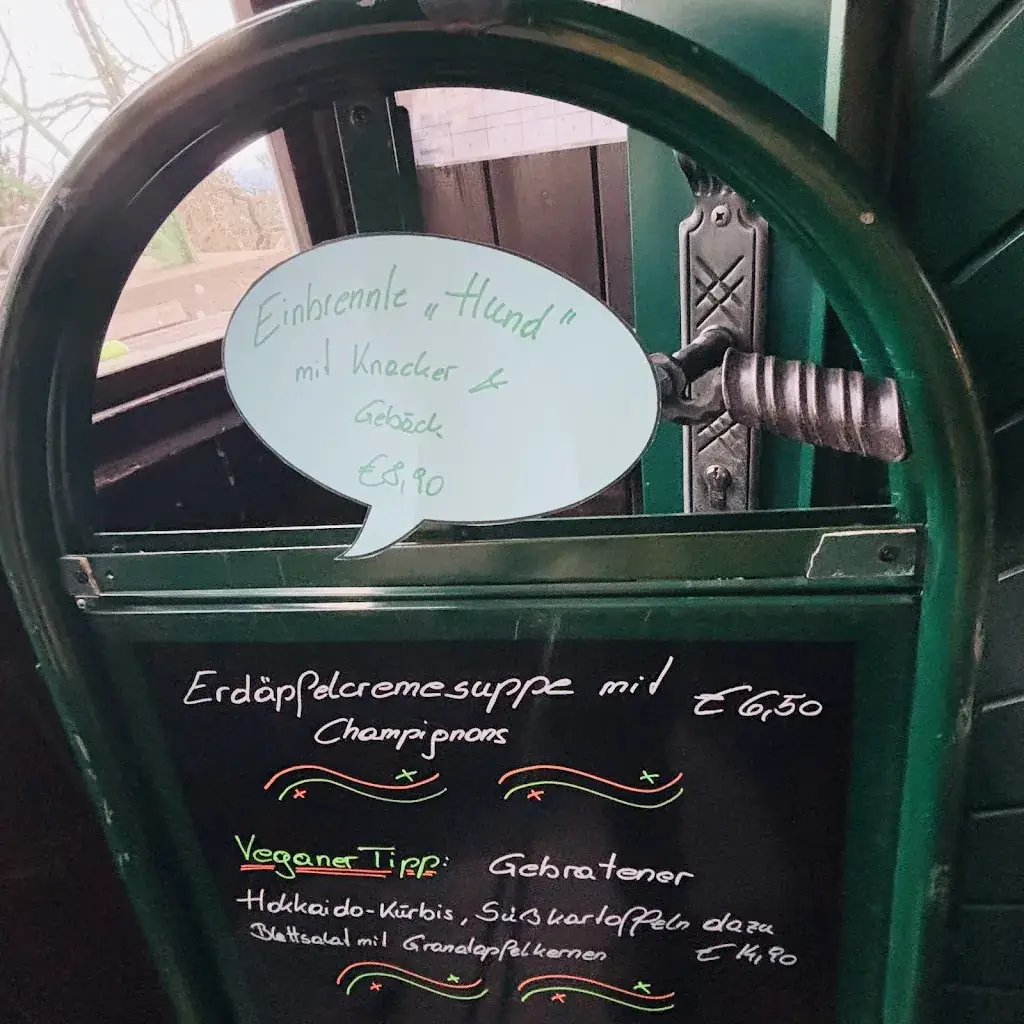 Einbrennte „Hund"
mit Knacker &
Gebäck
€8,90
Erdäpfelcremesuppe mit € 6,50
Champignons
Veganer Tipp: Gebratener
Hokkaido-Kürbis, Süßkartoffeln dazu
Blattsalat mit Granatapfelkernen € 14,90